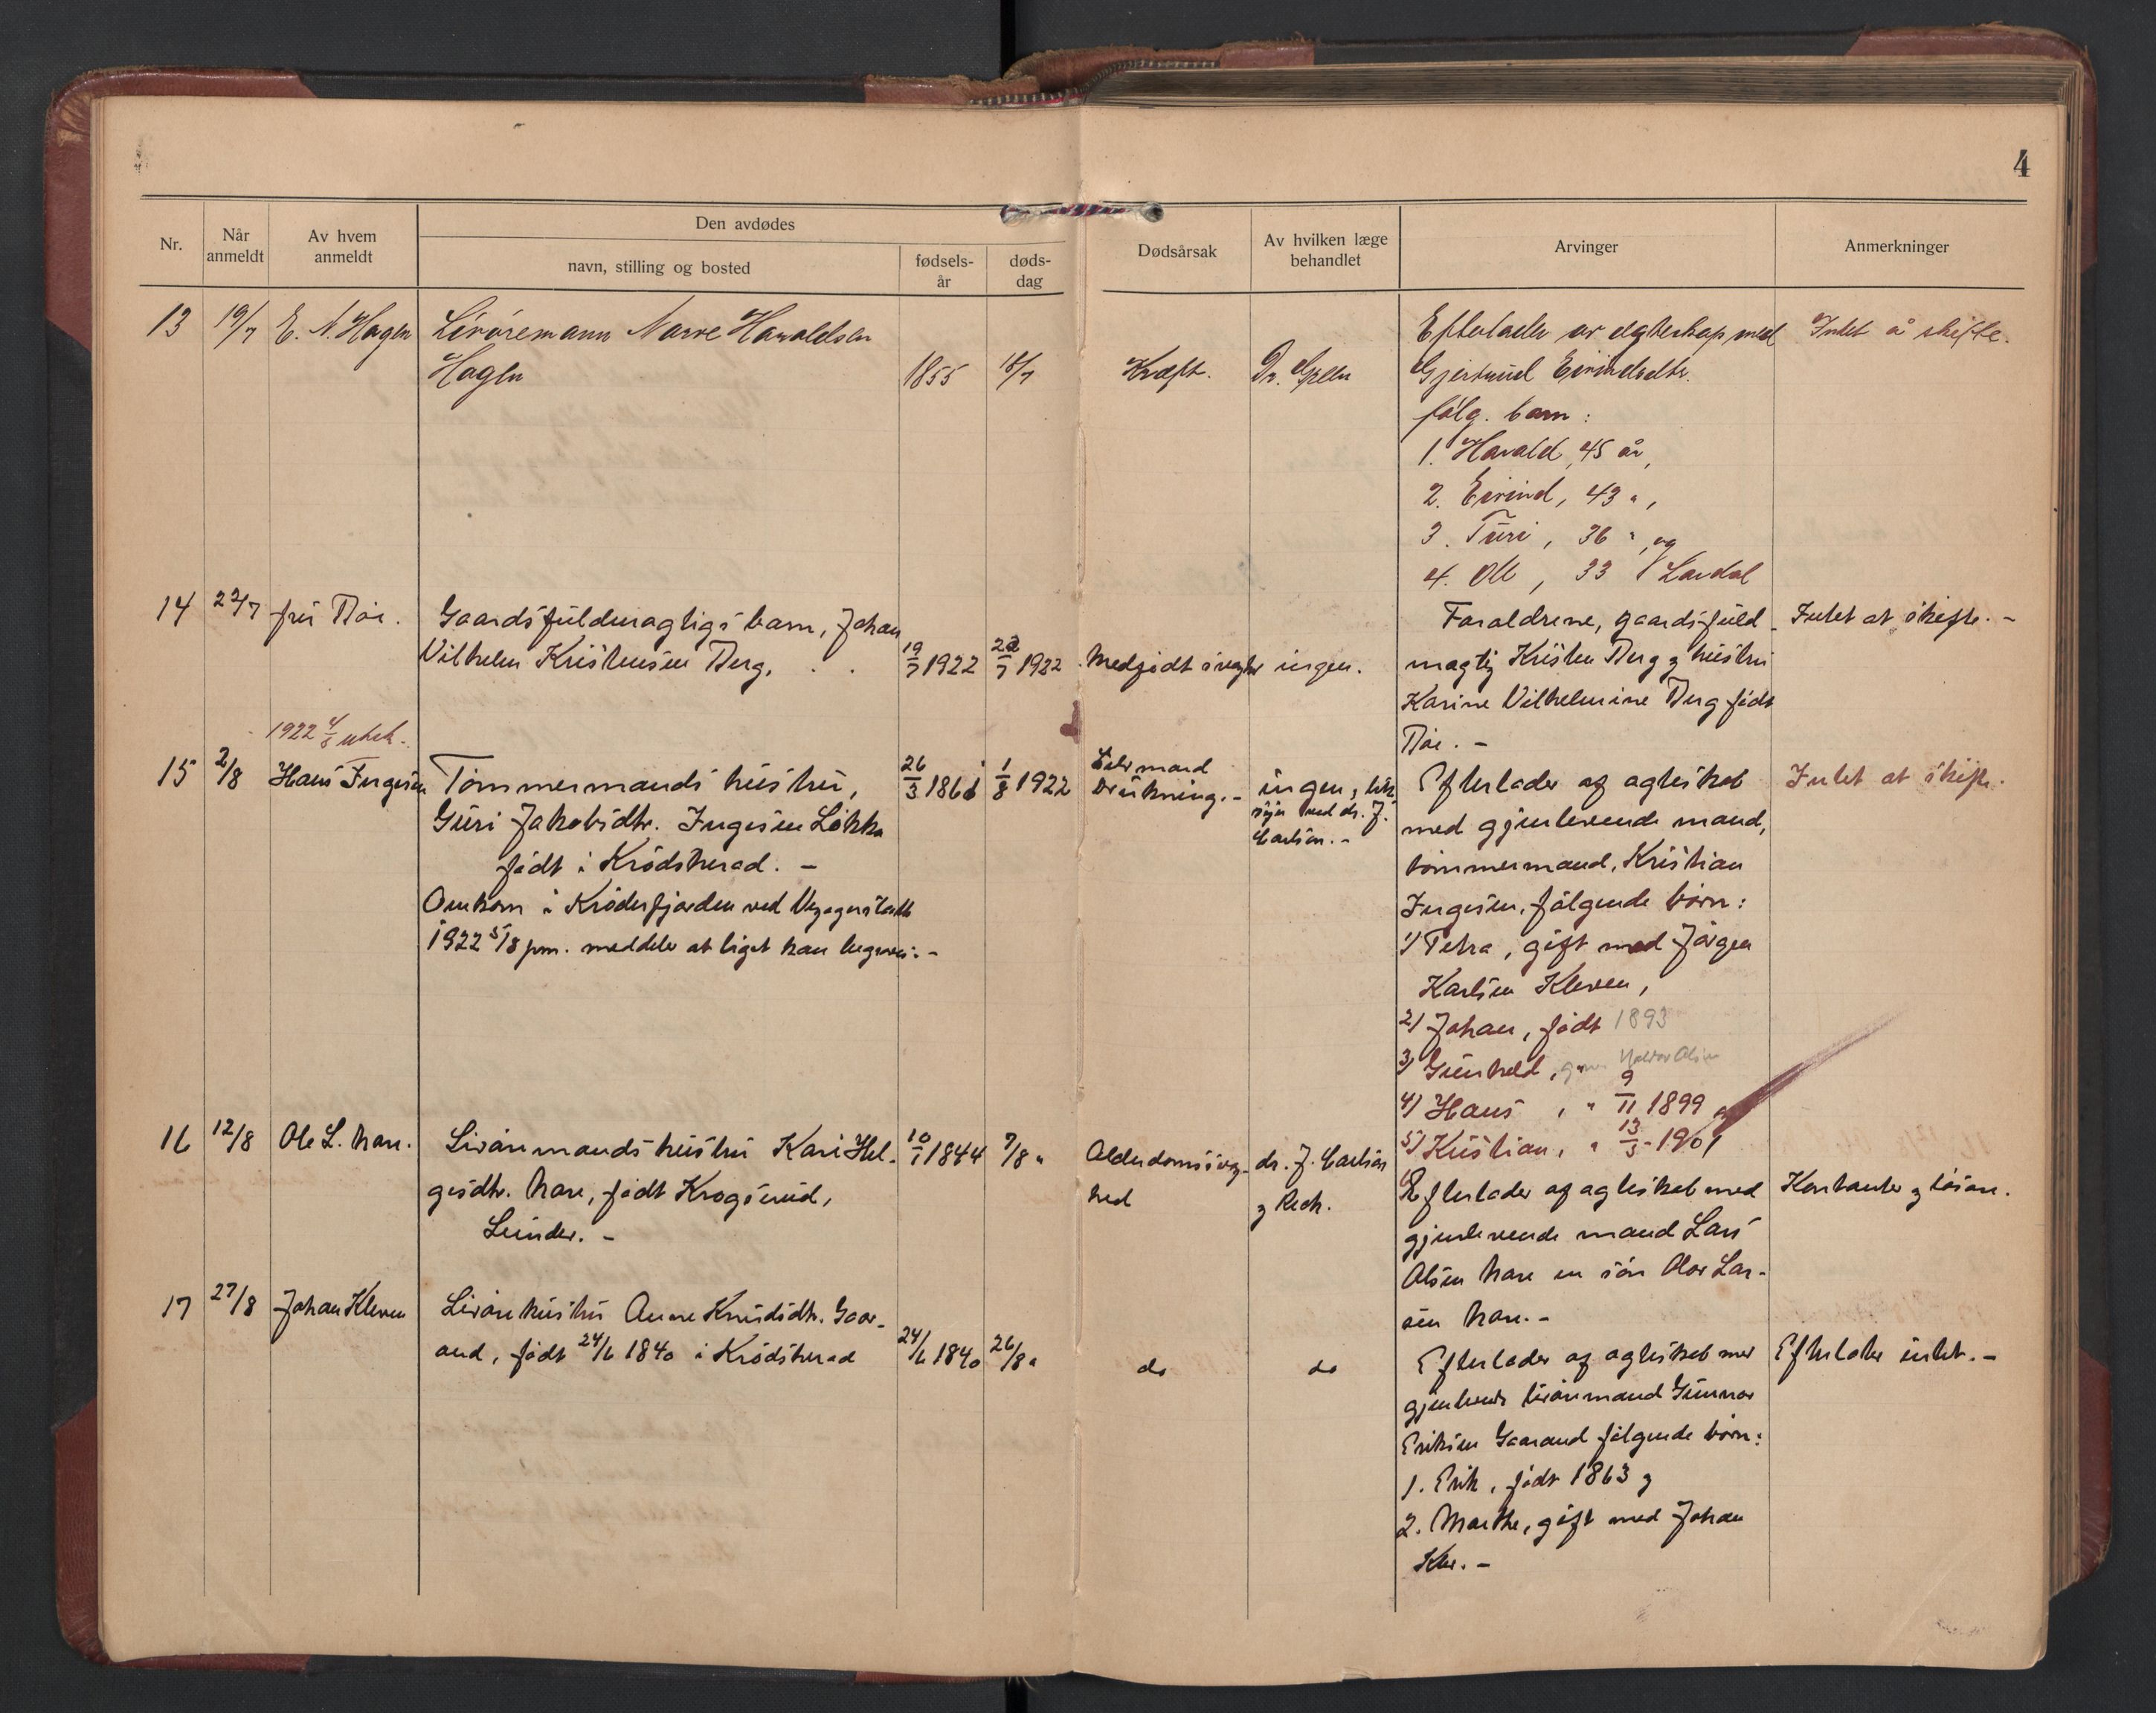 4
Den avdødes
Nr.
Når anmeldt
Av hvem anmeldt
navn, stilling og bosted
fødsels-år
døds-dag
Dødsårsak
Av hvilken læge behandlet
Arvinger
Anmerkninger
13 19/7 E. N. Hagen
Narve Haraldsen
Hagen 1855 18/7 Kræft. Dr.
Efterlader av egteskap med
Gjertrud Eivindsdtr.
følg. barn:
1. Harald, 45 år,
2. Eivind, 43 " ,
3. Turi, 36 " , og
4. Ole, 33 Lardal
Intet å skifte.
14 22/7 fru Bøe.
Gaardsfuldmægtigs barn, Johan
Vilhelm Kristensen Berg,
19/7 1922 22/7 1922 Medfødt svaghet ingen.
Forældrene, gaardsfuld-
mægtig Kristen Berg & hustru
Karine Vilhelmine Berg født
Bøe. -
Intet at skifte. -
1922 4/8
15 2/8 Hans Ingesen
Tømmermands hustru,
Guri Jakobsdtr. Ingesen Løkka
født i Krødsherad. -
Omkom i Krøderfjorden ved
1922 5/8 pm. meddeler at liget kan begraves. -
26/3 1861 1/8 1922
Selvmord
Drukning. -
ingen, lik-
syn ved dr. J.
Carlsen. -
Efterlader af egteskab
med gjenlevende mand,
tømmermand, Kristian
Ingesen, følgende børn:
1) Petra, gift med Jørgen
Karlsen Kleven,
2) Johan, født 1893
3) Gunhild,
4) Hans , " 9/11 1899 og
5) Kristian, " 13/3 1901
Intet at skifte.
16 12/8 Ole L. Mæn.
hustru Kari Hel-
gesdtr. født Krogsrud,
Lunder. -
10/1 1844 7/8 "
Alderdomssvag-
hed
dr. J. Carlsen
& Rech.
Efterlader af egteskab med
gjenlevende mand Lars
Olsen en søn Olav Lar-
sen
Kontanter & løsøre.
17 27/8 Johan Kleven
hustru Anne Knudsdtr. Gaar-
and, født 24/6 1840 i Krødsherad
24/6 1840 26/8 "
do
do
Efterlader af egteskab med
gjenlevende Gunnar
Eriksen Gaarand følgende børn:
1. Erik, født 1863 &
2. Marthe, gift med Johan
Klev. -
Efterlater intet. -